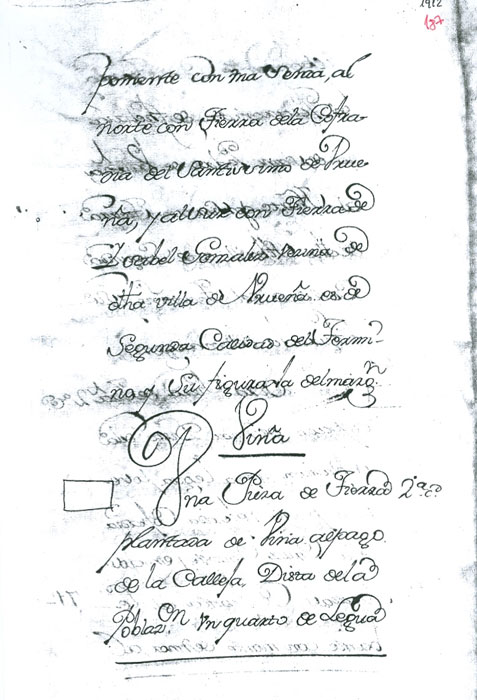 1912
187
poniente con ma Senda, al
norte con Tierra de la Cofra-
dia del Santissimo de Prue-
ña, y al sur con Tierra de
Ysabel Gonzales vezina de
dha villa de Prueña es de
Segunda Calidad del Termi-
no y su figura la del marzn
Viña
Una Pieza de Tierra 2ª. cd
plantada de Viña al pago
de la Calleja Dista de la
Poblazon un quarto de Legua